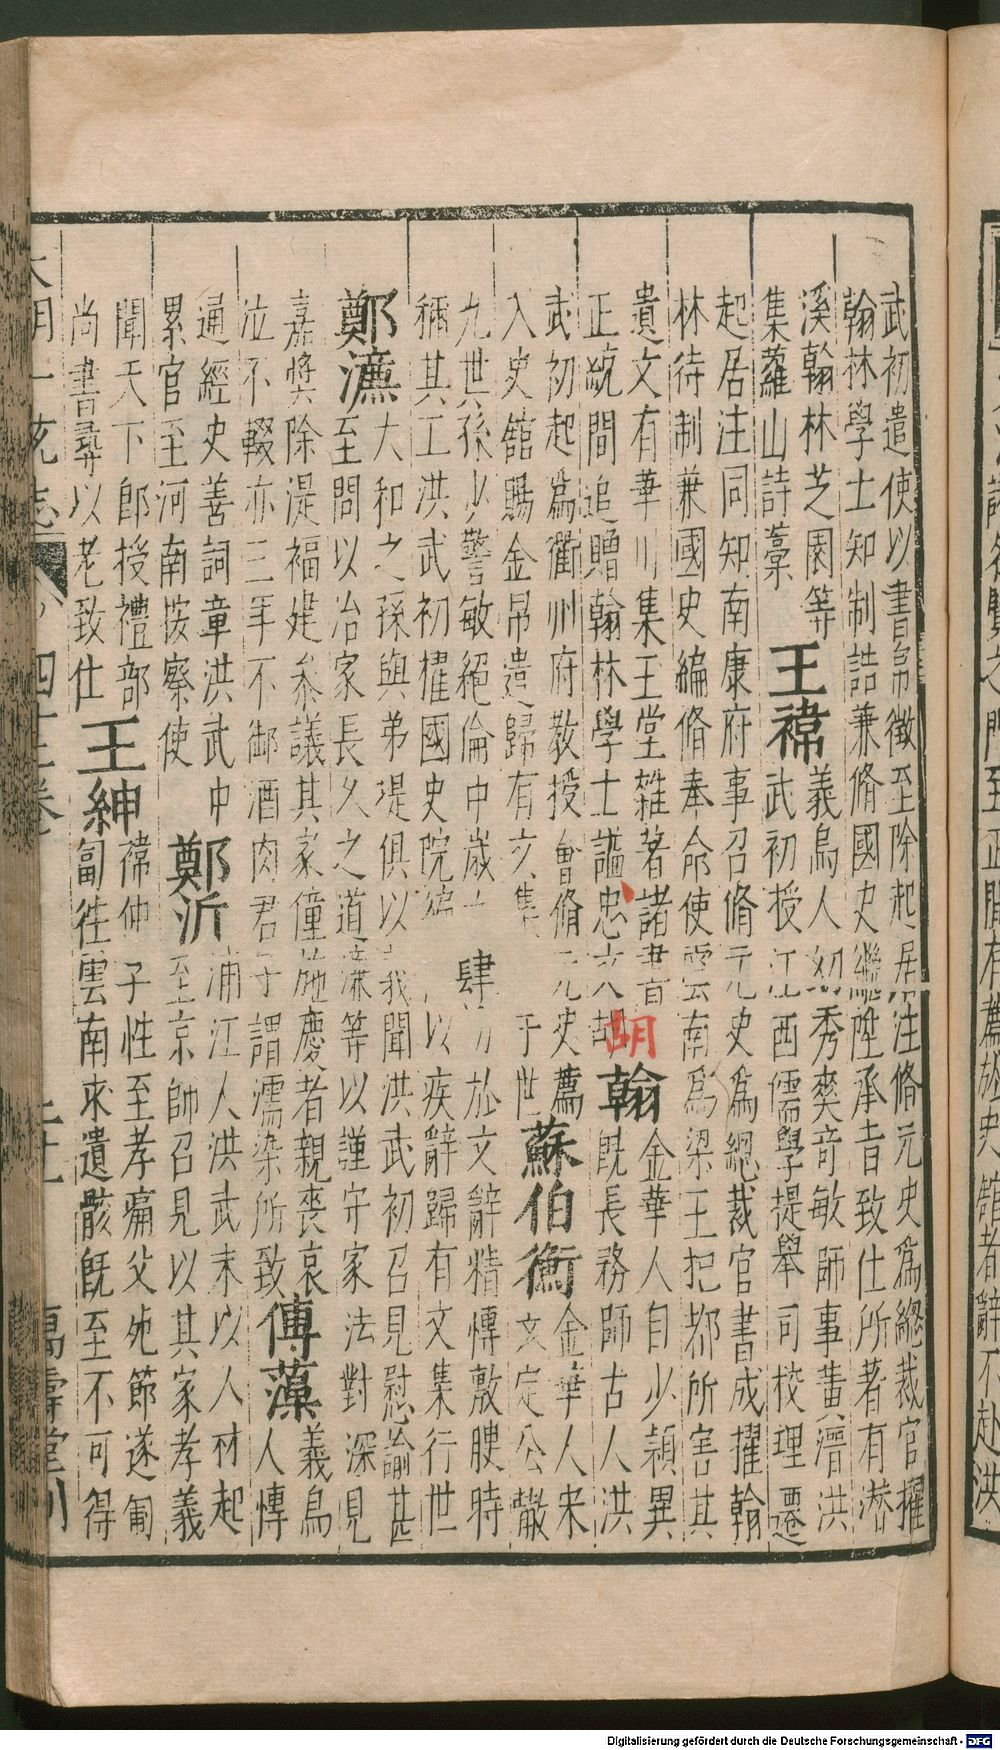 武初遣使以書帛徵至除起居注脩元史為總裁官擢
翰林學士知制誥兼脩國史繼陞承旨致仕所著有潛
溪翰林芝園等
集蘿山詩藁
王禕
義烏人幼秀爽奇敏師事黃溍洪
武初授江西儒學提舉司校理遷
起居注同知南康府事召脩元史為總裁官書成擢翰
林待制兼國史編脩奉命使雲南為梁王把都所害其
遺文有華川集玉堂雜著諸書
正統間追贈翰林學士諡忠文
胡翰
金華人自少穎異
既長務師古人洪
武初起為衢州府教授會脩元史薦
入史館賜金帛遣歸有文集于世
蘇伯衡
金華人宋
文定公轍
九世孫少警敏絕倫中歲肆力於文辭精愽敷腴時
稱其工洪武初擢國史院編以疾辭歸有文集行世
鄭濂
大和之孫與弟湜俱以義聞洪武初召見慰諭甚
至問以治家長久之道濂等以謹守家法對深見
嘉奬除湜福建參議其家僮施慶者親喪哀
泣不輟亦三年不御酒肉君子謂濡染所致
傅藻
義烏
人愽
通經史善詞章洪武中
累官至河南按察使
鄭沂
浦江人洪武末以人材起
至京師召見以其家孝義
聞天下即授禮部
尚書尋以老致仕
王紳
禕仲子性至孝痛父死節遂匍
匐徃雲南求遺骸既至不可得
大明一統志 四十二卷 萬壽堂刊
Digitalisierung gefördert durch die Deutsche Forschungsgemeinschaft - DFG